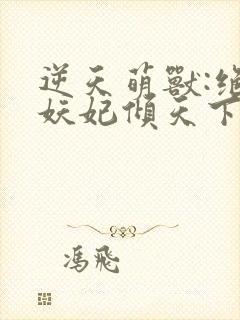 逆天萌獸:絕
妖妃傾天下
馮飛